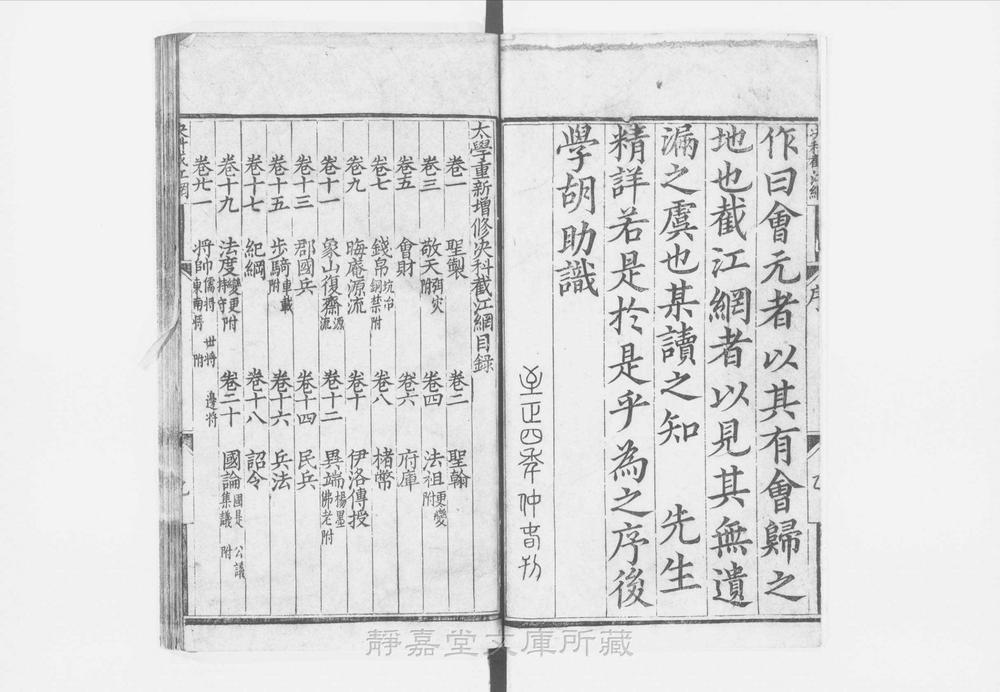 作曰會元者以其有會歸之
地也截江網者以見其無遺
漏之虞也某讀之知　先生
精詳若是於是乎為之序後
學胡助識
至正四年仲春刊
太學重新增修決科截江網目錄
卷一　聖製　卷二　聖翰
卷三　敬天附災　卷四　法祖更變附
卷五　會財　卷六　府庫
卷七　錢帛坑冶銅禁附　卷八　楮幣
卷九　晦庵源流　卷十　伊洛傳授
卷十一　象山復齋源流　卷十二　異端楊墨佛老附
卷十三　郡國兵　卷十四　民兵
卷十五　步騎車載附　卷十六　兵法
卷十七　紀綱　卷十八　詔令
卷十九　法度變更持守附　卷二十　國論國是集議公議附
卷廿一　將帥儒將東南將世將邊將附
靜嘉堂文庫所藏